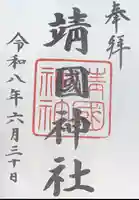 奉拝
靖國神社
令和八年六月三十日
靖國神社